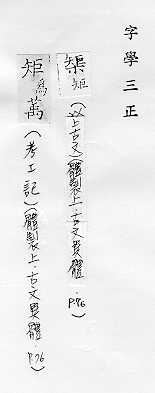 字學三正
榘矩(以上古文)(體製上.古文異體.P.76)
矩為萬(考工記)(體製上.古文異體.P.76)